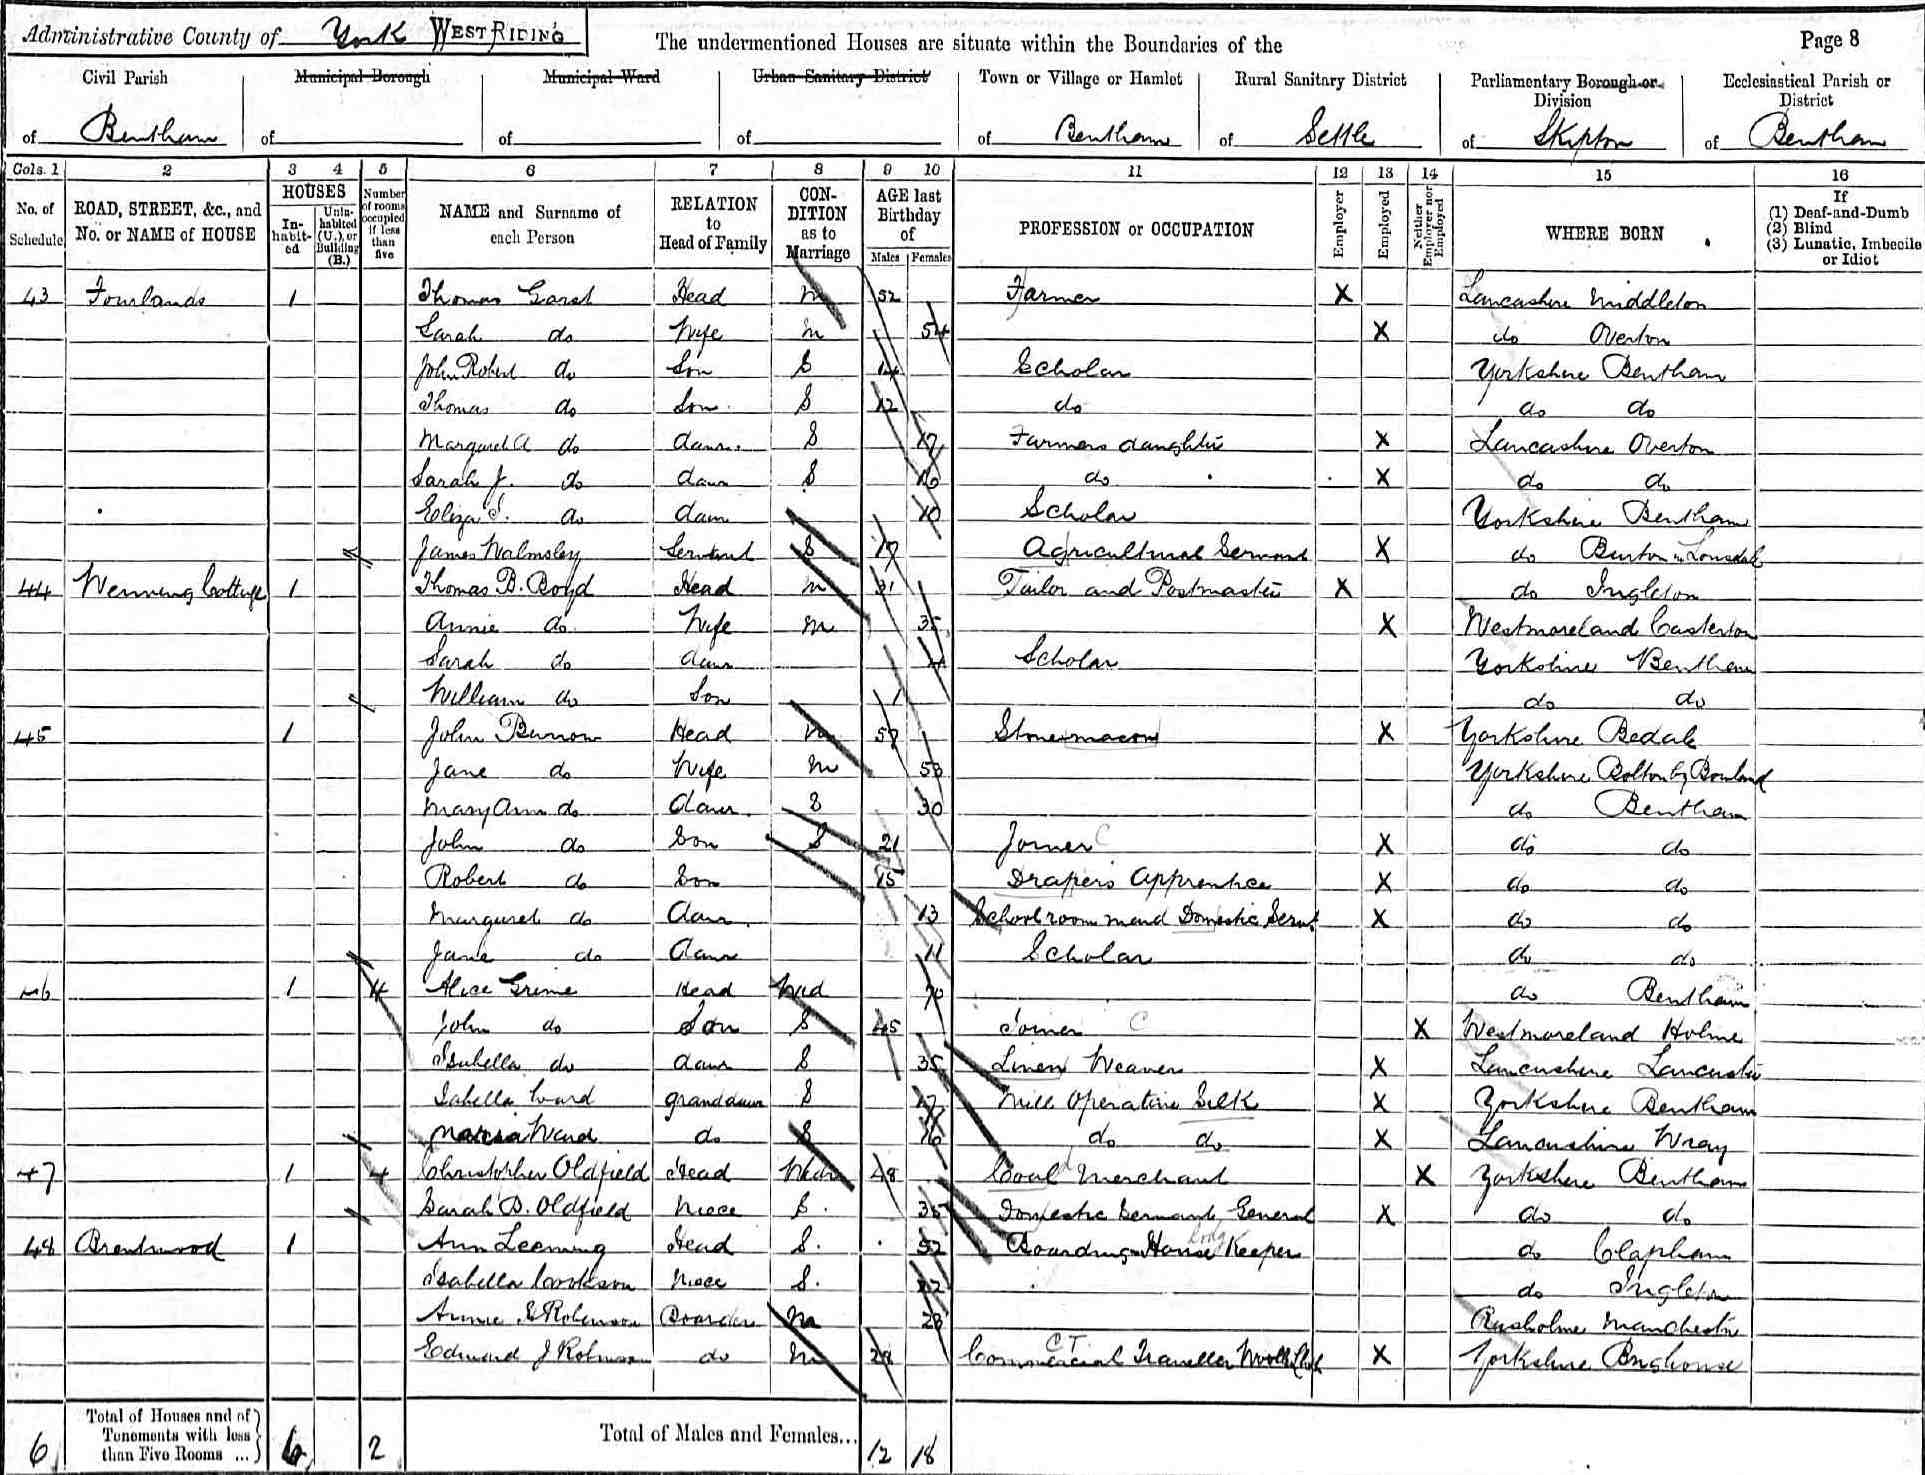 Administrative County of York WEST RIDING
The undermentioned Houses are situate within the Boundaries of the
Page 8
Civil Parish of Bentham
Municipal Borough of
Municipal Ward of
Urban Sanitary District of
Town or Village or Hamlet of Bentham
Rural Sanitary District of Settle
Parliamentary Borough or Division of Skipton
Ecclesiastical Parish or District of Bentham
Cols. 1 2 3 4 5 6 7 8 9 10 11 12 13 14 15 16
No. of Schedule
ROAD, STREET, &c., and No. or NAME of HOUSE
HOUSES
In-habit-ed
Unin-habited (U.), or Building (B.)
Number of rooms occupied if less than five
NAME and Surname of each Person
RELATION to Head of Family
CON-DITION as to Marriage
AGE last Birthday of
Males Females
PROFESSION or OCCUPATION
Employer
Employed
Neither Employer nor Employed
WHERE BORN
If (1) Deaf-and-Dumb (2) Blind (3) Lunatic, Imbecile or Idiot
43 Fourlands 1 Thomas Garst Head M 52 Farmer X Lancashire Middleton
Sarah do Wife M 54 X do Overton
John Robert do Son S 14 Scholar Yorkshire Bentham
Thomas do Son S 12 do do do
Margaret A do daur. S 17 Farmers daughter X Lancashire Overton
Sarah J. do daur S 16 do X do do
Eliza I. do daur 10 Scholar Yorkshire Bentham
James Walmsley Servant S 17 Agricultural Servant X do Burton in Lonsdale
44 Wenning Cottage 1 Thomas B. Boyd Head M 31 Tailor and Postmaster X do Ingleton
Annie do Wife M 35 X Westmoreland Casterton
Sarah do daur 4 Scholar Yorkshire Bentham
William do Son 1 do do
45 1 John Burrow Head M 57 Stonemason X Yorkshire Bedale
Jane do Wife M 53 Yorkshire Bolton by Bowland
Mary Ann do Daur. S 30 do Bentham
John do Son S 21 Joiner C X do do
Robert do Son 15 Drapers Apprentice X do do
Margaret do Daur. 13 Schoolroom maid Domestic Servt X do do
Jane do Daur 11 Scholar do do
46 1 4 Alice Grime Head Wid 70 do Bentham
John do Son S 45 Joiner C X Westmoreland Holme
Isabella do daur S 35 Linen Weaver X Lancashire Lancaster
Isabella Ward granddaur S 17 Mill Operative Silk X Yorkshire Bentham
Ward do S 16 do do X Lancashire Wray
47 1 4 Christopher Oldfield Head Widr 48 Coal Merchant X Yorkshire Bentham
Sarah D. Oldfield Niece S. 35 Domestic Servant General X do do
48 Brentwood 1 Ann Leeming Head S. 52 Boarding House Keeper Lodg do Clapham
Isabella Cookson Niece S. 22 do Ingleton
Annie E Robinson Boarder M 23 Rusholme Manchester
Edward J Robinson do M 28 Commercial Traveller C T X Yorkshire Brighouse
6 Total of Houses and of Tenements with less than Five Rooms ... 6 2 Total of Males and Females... 12 18